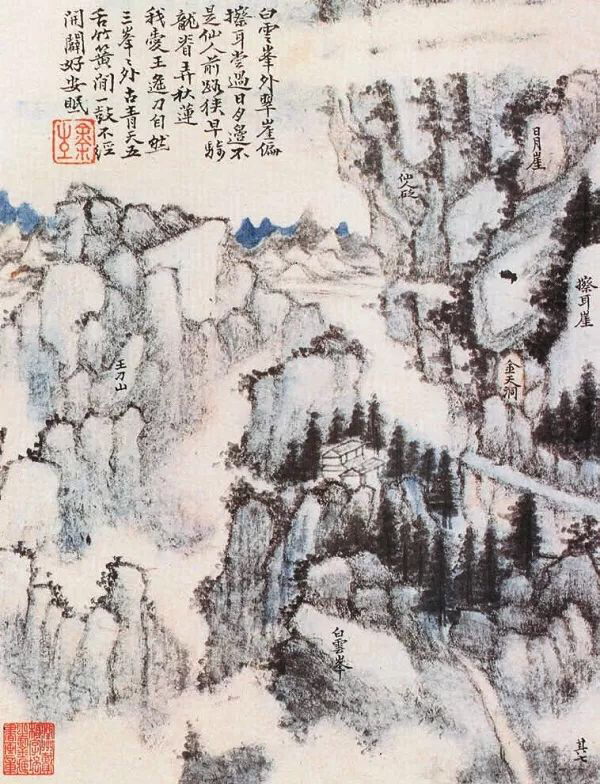 白雲峯外翠崖偏
擦耳尝過日夕邊不
是仙人前路狹早騎
龍脊弄秋蓮
我愛王逸刀自然
三峯〻外古青天五
舌竹簧閒一鼓不經
開闢好安眠
日月崖
仙人砭
擦耳崖
金天洞
王刀山
白雲峯
其七